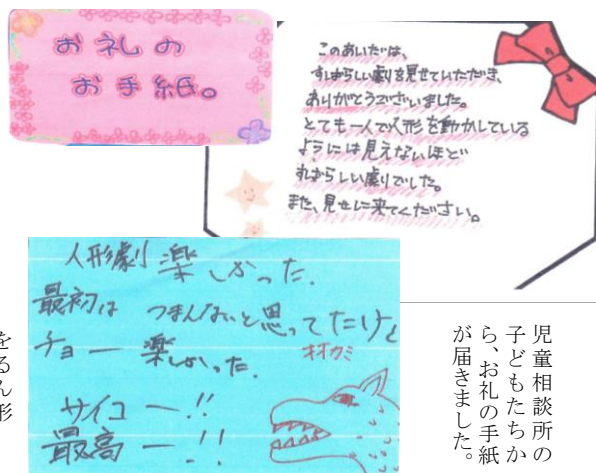 お礼の
お手紙。
このあいだは、
すばらしい劇を見せていただき、
ありがとうございました。
とても一人で人形を動かしている
ようには見えないほど
すばらしい劇でした。
また、見せに来てください。
人形劇楽しかった.
最初はつまんないと思ってたけど
チョー楽しかった.
オオカミ
サイコー!!
最高ー!!
児童相談所の
子どもたちか
ら、お礼の手紙
が届きました。